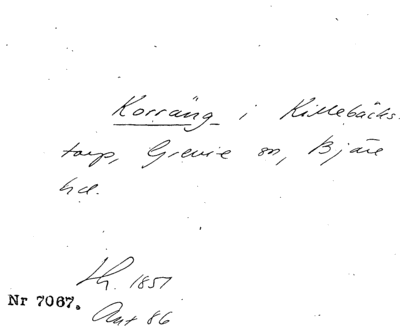 Korräng i Killebäcks-
torp, Grevie sn, Bjäre
hd.
Lh. 1851
Nr 7067.
Ant 86